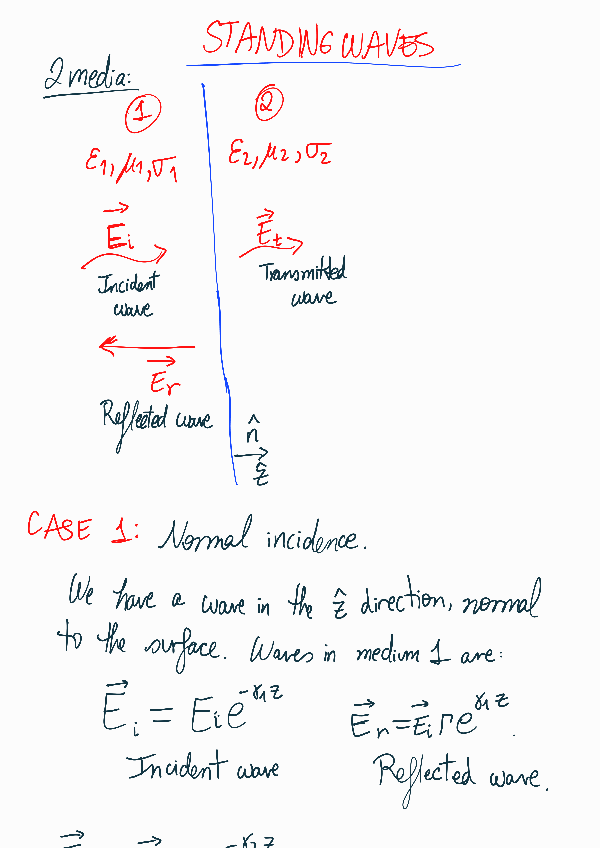 STANDING WAVES
2 media:
1
2
ε₁, μ₁, σ₁
ε₂, μ₂, σ₂
E⃗ᵢ
E⃗ₜ
Incident
wave
Transmitted
wave
E⃗ᵣ
Reflected wave
n̂
ẑ
CASE 1: Normal incidence.
We have a wave in the ẑ direction, normal
to the surface. Waves in medium 1 are:
E⃗ᵢ = Eᵢ e^{-γ₁z}
E⃗ᵣ = E⃗ᵢ Γ e^{γ₁z}.
Incident wave
Reflected wave.